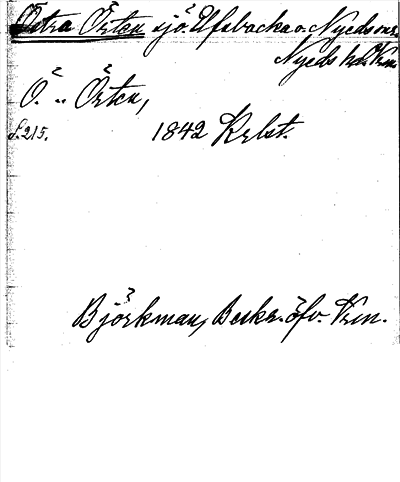 Östra Örten sjö. Ulvsbacka o. Nyeds snr.
Nyeds hd. Vrm.
Ö. „ Örten,
S. 215. 1842 Krlst.
Björkman, Beskr. öfv. Vrm.